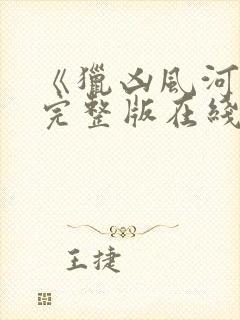 《獵凶風河
完整版在綫
王捷